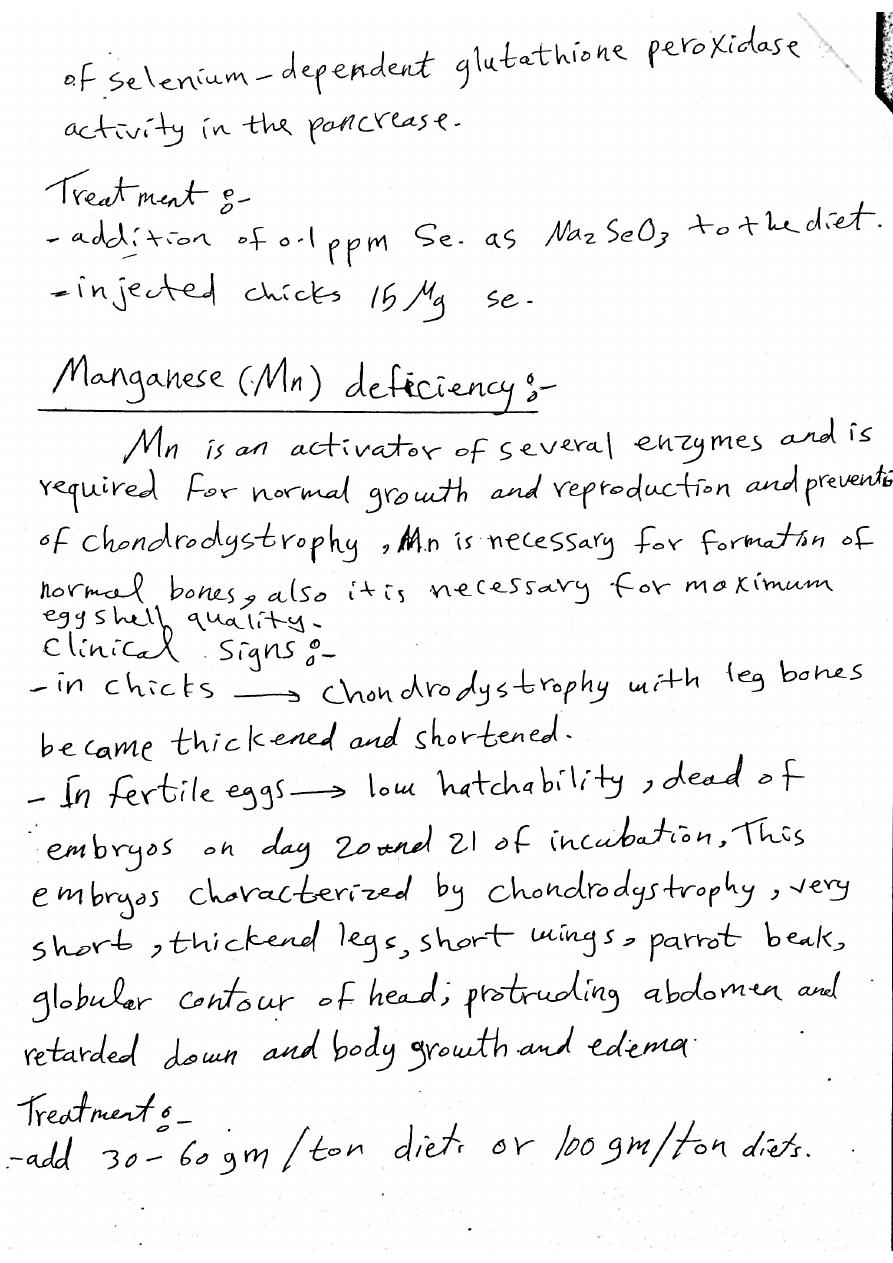 of selenium-dependent glutathione peroxidase
activity in the pancrease.
Treatment :-
- addition of 0.1 ppm Se. as Na2 SeO3 to the diet.
- injected chicks 15 Mg se.
Manganese (Mn) deficiency :-
Mn is an activator of several enzymes and is
required for normal growth and reproduction and preventi
of chondrodystrophy, Mn is necessary for formation of
normal bones, also it is necessary for maximum
egg shell quality.
Clinical signs :-
- in chicks → chondrodystrophy with leg bones
became thickened and shortened.
- In fertile eggs → low hatchability, dead of
embryos on day 20 and 21 of incubation, This
embryos characterized by chondrodystrophy, very
short, thickend legs, short wings, parrot beak,
globular contour of head; protruding abdomen and
retarded down and body growth and edema.
Treatment :-
- add 30-60 gm/ton diet. or 100 gm/ton diets.